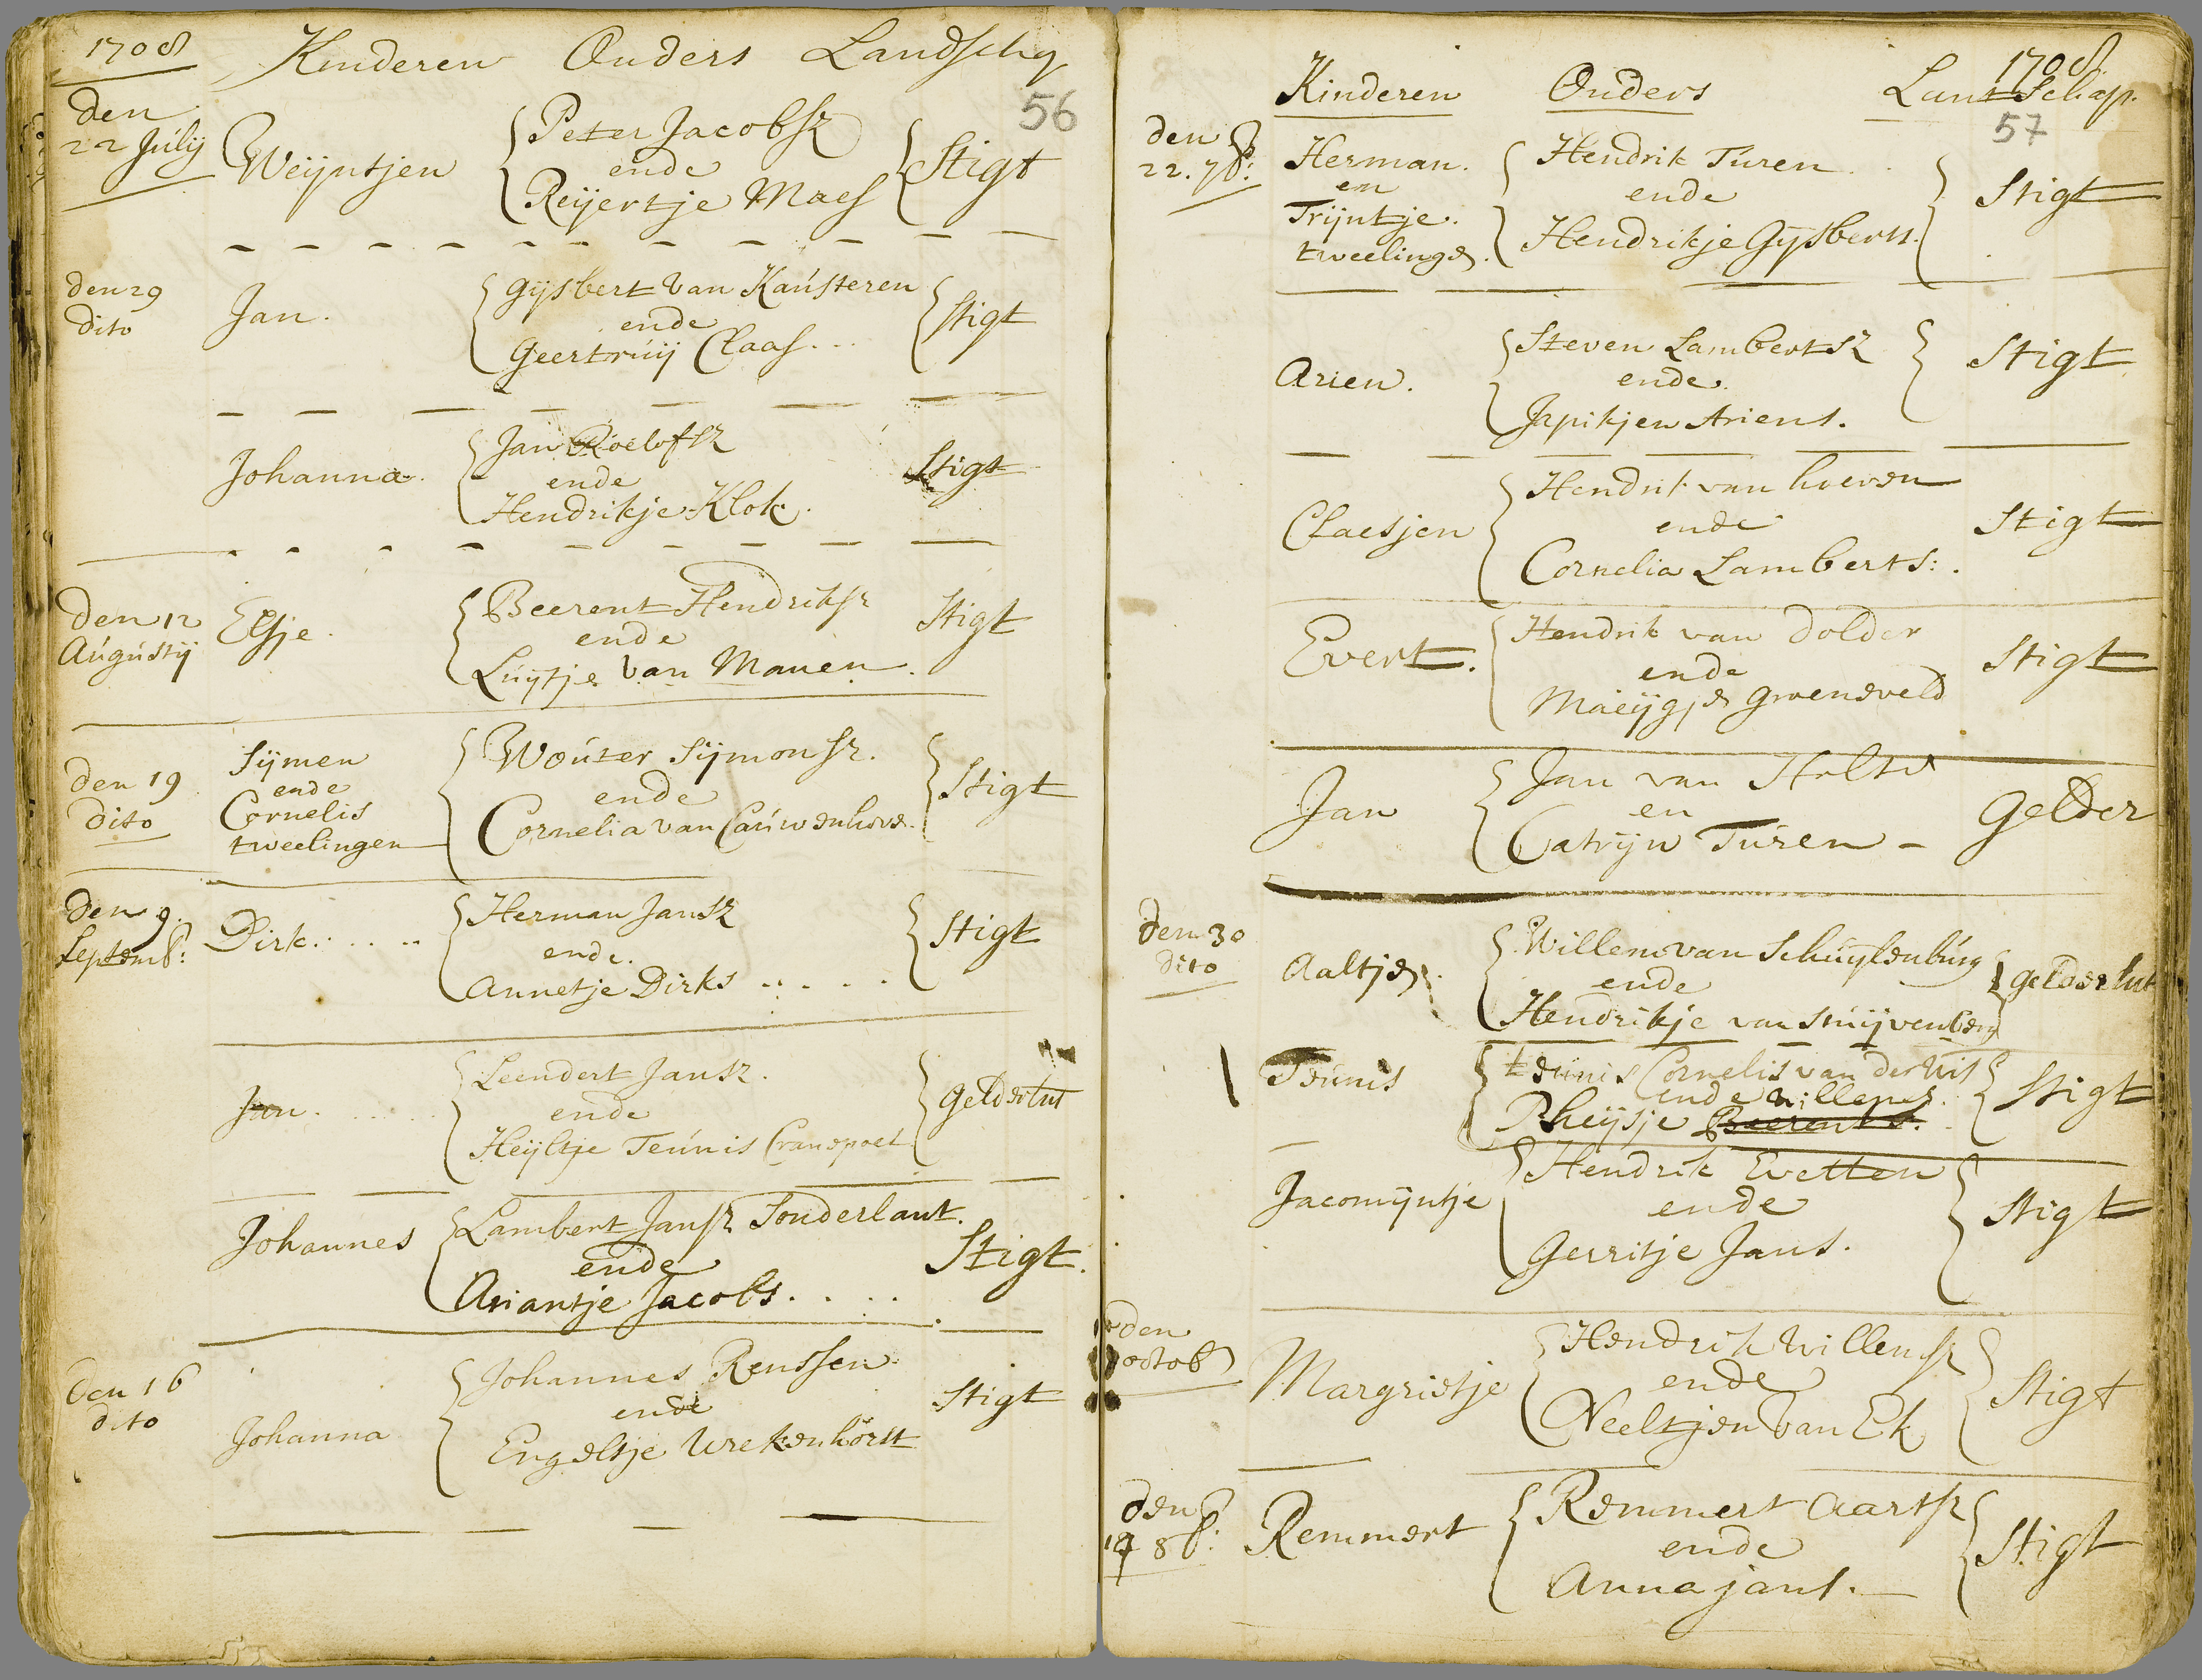 1708 Kinderen Ouders Landschap
56
den
22 Julij Weijntjen Peter Jacobsz
ende
Reijertje Maes Stigt
den 29
dito Jan. Gijsbert van Kausteren
ende
Geertruij Claas... Stigt
Johanna. Jan Roelofsz
ende
Hendrikje Klok. Stigt
den 12
Augustij Elsje. Beerent Hendriksz
ende
Luijtje van Manen. Stigt
den 19
dito
Sijmen
ende
Cornelis
tweelingen
Wouter Sijmonsz.
ende
Cornelia van Cauwenhove. Stigt
den 9.
Septemb: Dirk..... Herman Jansz
ende.
Annetje Dirks..... Stigt
Jan..... Leendert Jansz.
ende
Heijltje Teunis Cranspoet Gelderlnt
Johannes Lambert Jansz Sonderlant.
ende
Ariantje Jacobs.... Stigt.
den 16
dito Johanna Johannes Renssen
ende
Engeltje Wrekenhorst Stigt
1708
Kinderen Ouders Lantschap.
57
den
22. 7b:
Herman.
en
Trijntje.
tweelinge.
Hendrik Turen..
ende
Hendrikje Gijsberts. Stigt
Arien. Steven Lambertsz
ende.
Japikjen Ariens. Stigt
Claesjen Hendrik van hoeven
ende
Cornelia Lamberts:. Stigt
Evert. Hendrik van Dolder
ende
Maeijgje Groeneveld Stigt
Jan Jan van Holst
en
Catrijn Turen - Gelder
den 30
dito Aaltje. Willem van Schuijlenburg
ende
Hendrikje van Stuijvenberg Gelderlnt
Teunis teunis Cornelis van der Wit
ende willems.
Rheijsje Beerents. Stigt
Jacomijntje Hendrik Evetten
ende
Gerritje Jans. Stigt
den
octob Margrietje Hendrik Willemsz
ende
Neeltjen van Ek Stigt
den
8b: Remmert Remmert Aartsz
ende
Anna jans. Stigt